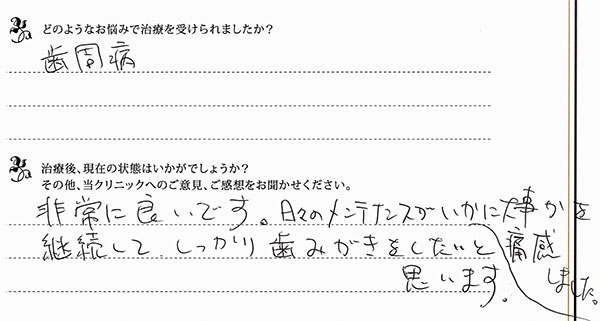 どのようなお悩みで治療を受けられましたか?
歯周病
治療後、現在の状態はいかがでしょうか?
その他、当クリニックへのご意見、ご感想をお聞かせください。
非常に良いです。日々のメンテナンスがいかに大事かを
痛感
しました。
継続して、しっかり歯みがきをしたいと
思います。